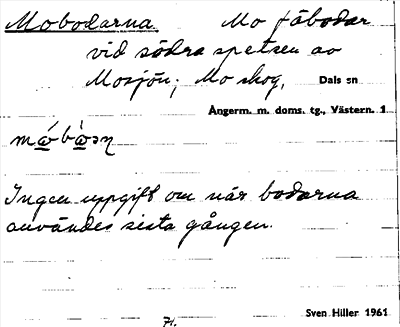 Mobodarna. Mo fäbodar
vid södra spetsen av
Mosjön, Mo skog, Dals sn
Ångerm. m. doms. tg., Västern. 1
Ingen uppgift om när bodarna
användes sista gången.
Sven Hiller 1961